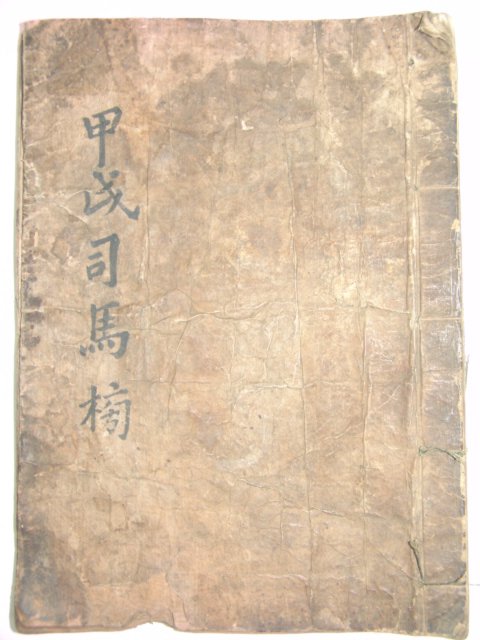 甲戌司馬榜